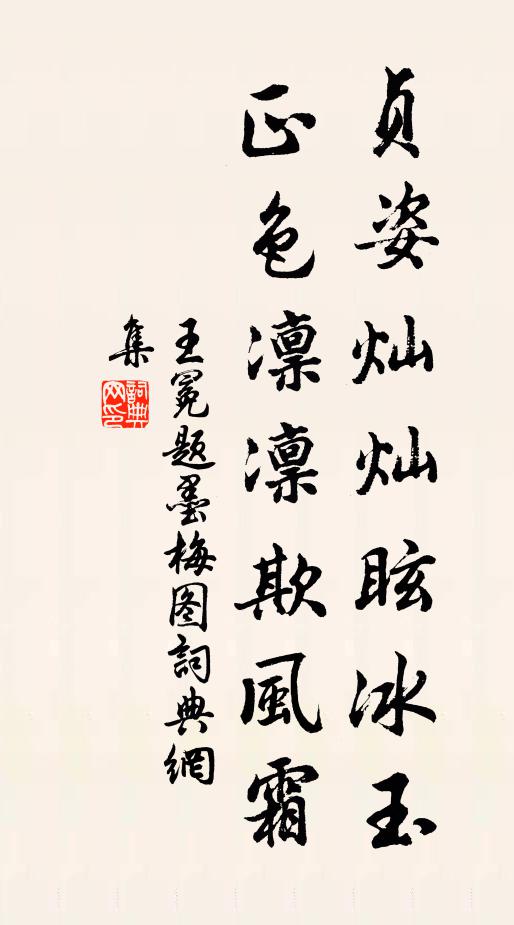 贞姿灿灿眩冰玉
正色凛凛欺風霜
王冕题墨梅图詞典網
集
詞典网印